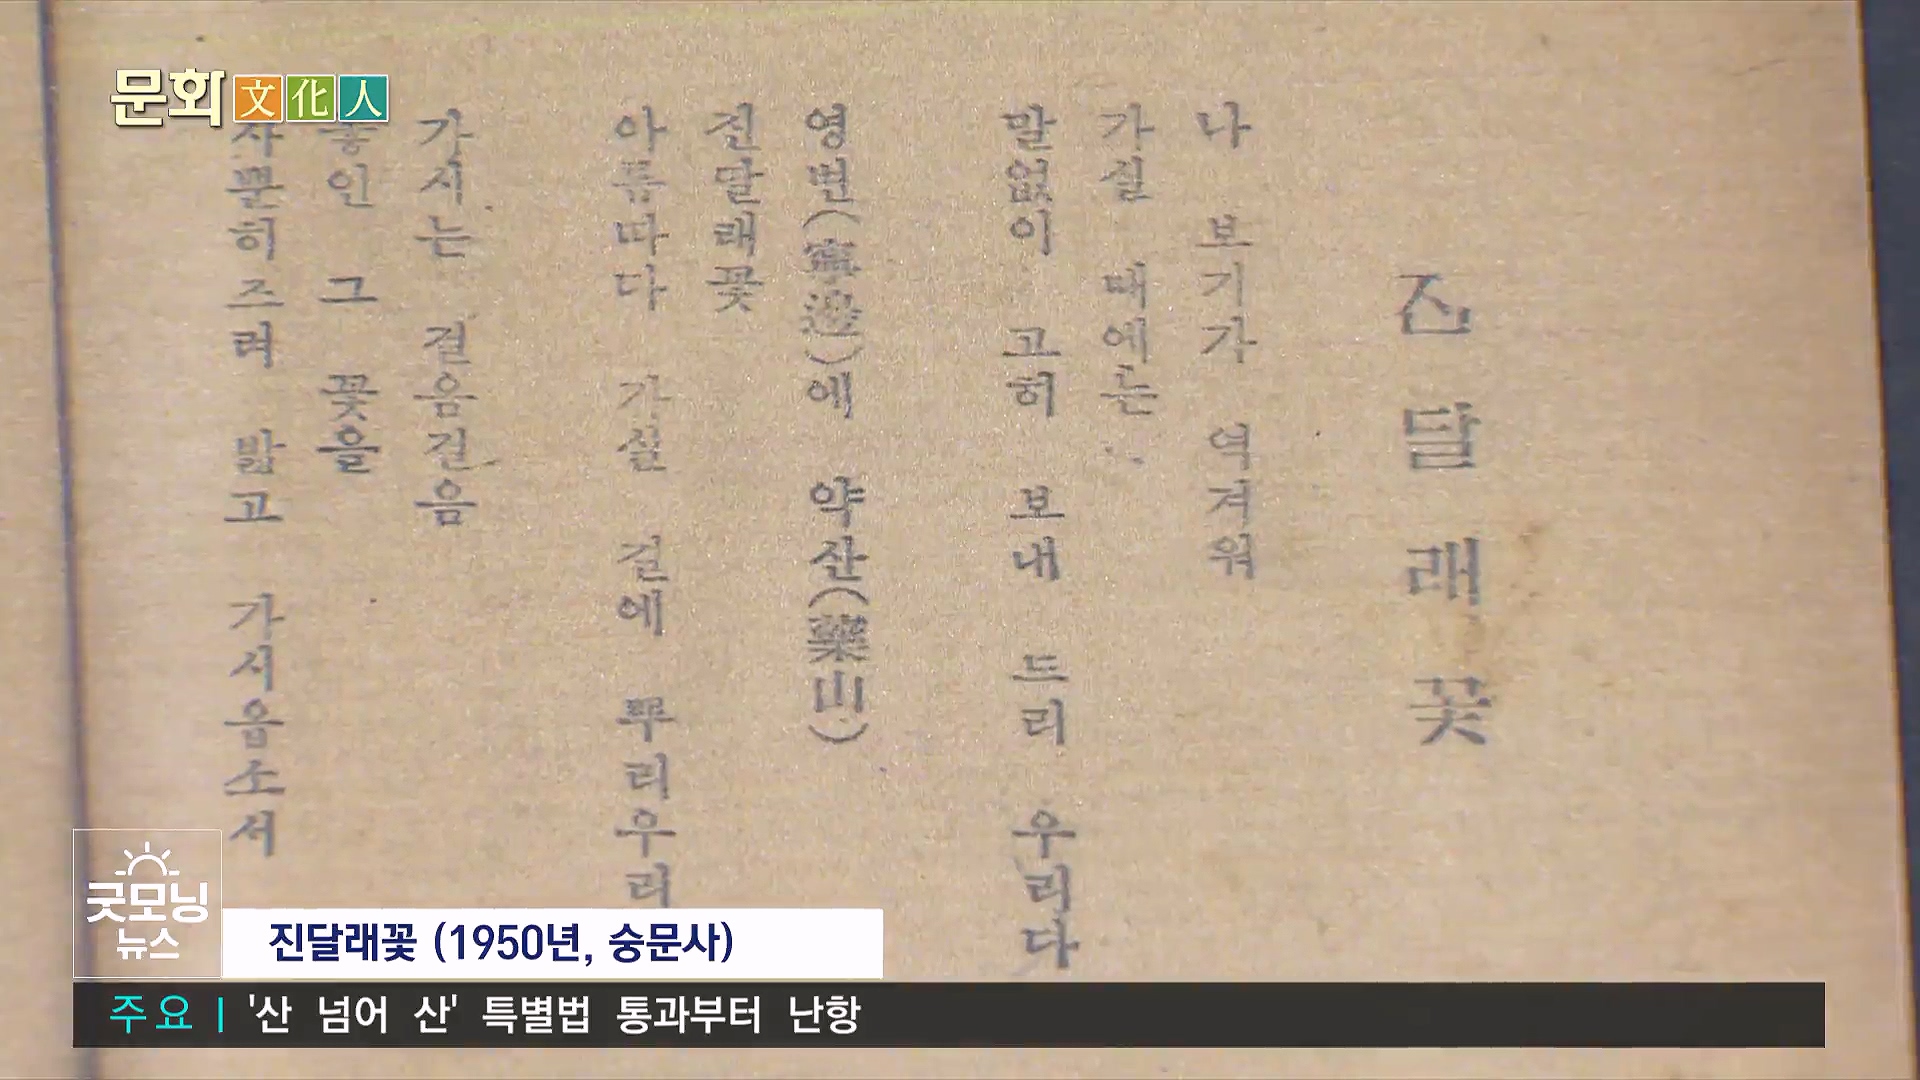 문화文化人
진달래꽃
나 보기가 역겨워
가실 때에는
말없이 고히 보내 드리 우리다
영변(寧邊)에 약산(藥山)
진달래꽃
아름따다 가실 길에 뿌리우리
가시는 걸음걸음
놓인 그 꽃을
사뿐히즈려 밟고 가시옵소서
굿모닝
뉴스
진달래꽃 (1950년, 숭문사)
주요 | '산 넘어 산' 특별법 통과부터 난항